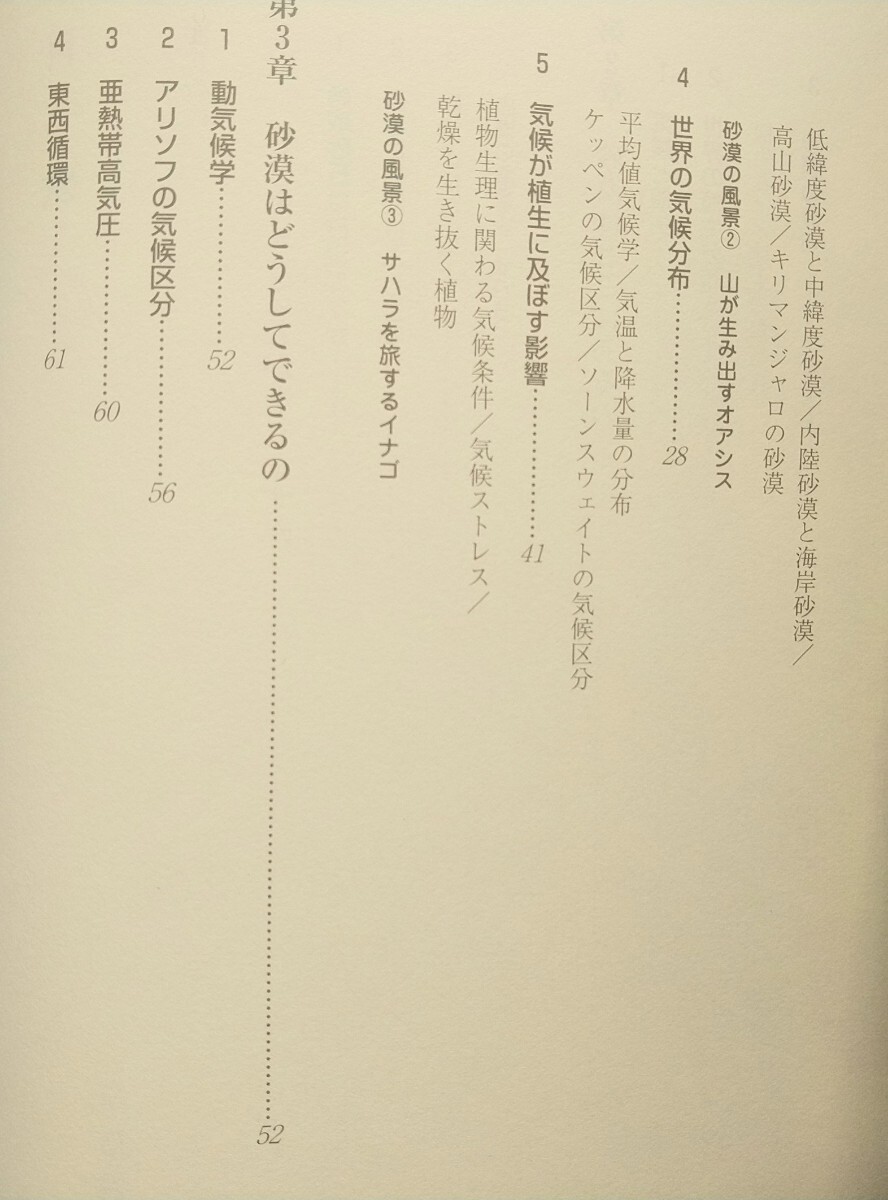 低緯度砂漠と中緯度砂漠／内陸砂漠と海岸砂漠／
高山砂漠／キリマンジャロの砂漠
砂漠の風景② 山が生み出すオアシス
4 世界の気候分布………………28
平均値気候学／気温と降水量の分布
ケッペンの気候区分／ソーンスウェイトの気候区分
5 気候が植生に及ぼす影響………………41
植物生理に関わる気候条件／気候ストレス／
乾燥を生き抜く植物
砂漠の風景③ サハラを旅するイナゴ
第3章 砂漠はどうしてできるの………………………………………………52
1 動気候学………………52
2 アリソフの気候区分………………56
3 亜熱帯高気圧………………60
4 東西循環………………61